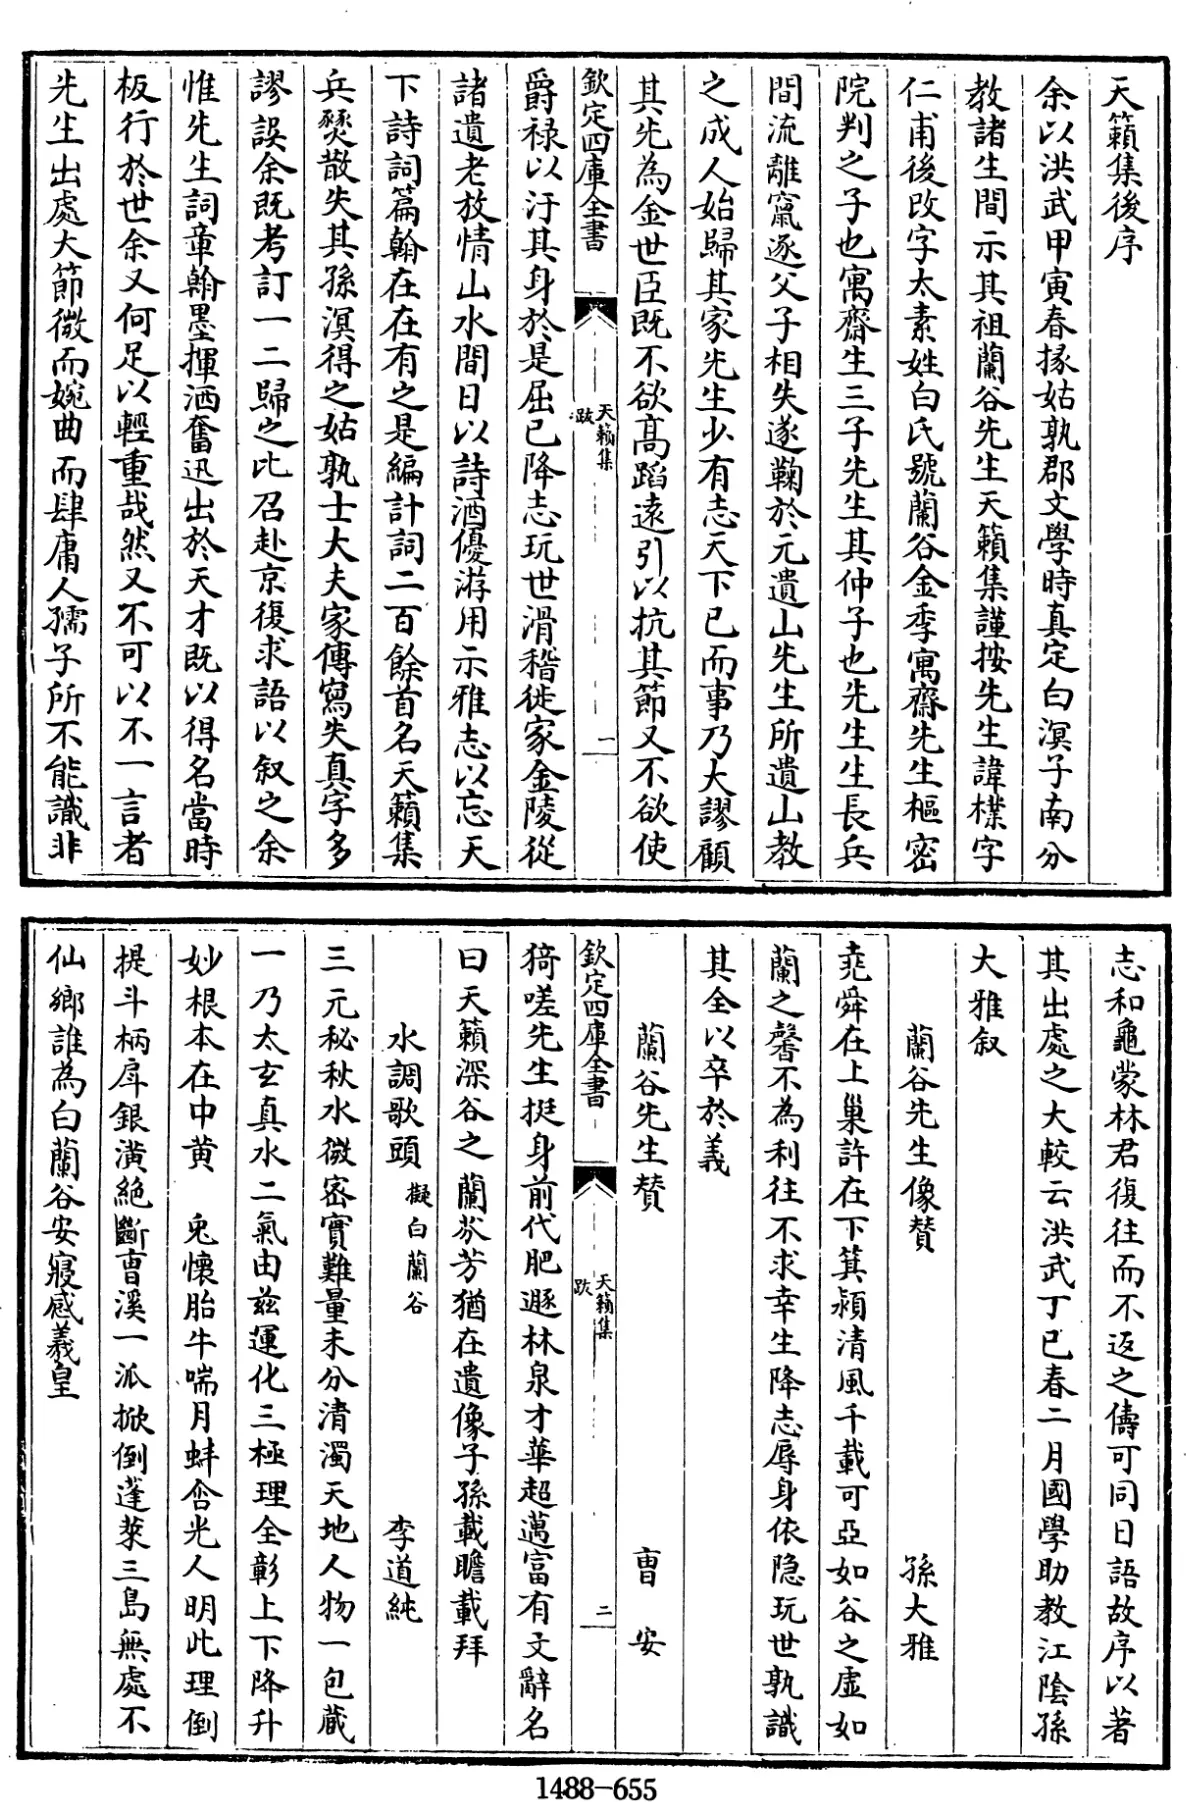 天籟集後序
余以洪武甲寅春掾姑孰郡文學時真定白溟子南分
教諸生間示其祖蘭谷先生天籟集謹按先生諱樸字
仁甫後改字太素姓白氏號蘭谷金季寓齋先生樞密
院判之子也寓齋生三子先生其仲子也先生生長兵
間流離竄逐父子相失遂鞠於元遺山先生所遺山教
之成人始歸其家先生少有志天下已而事乃大謬顧
其先為金世臣既不欲高蹈遠引以抗其節又不欲使
欽定四庫全書
天籟集
跋
一
爵禄以汙其身於是屈已降志玩世滑稽徙家金陵從
諸遺老放情山水間日以詩酒優游用示雅志以忘天
下詩詞篇翰在在有之是編計詞二百餘首名天籟集
兵燹散失其孫溟得之姑孰士大夫家傳寫失真字多
謬誤余既考訂一二歸之比召赴京復求語以叙之余
惟先生詞章翰墨揮洒奮迅出於天才既以得名當時
板行於世余又何足以輕重哉然又不可以不一言者
先生出處大節微而婉曲而肆庸人孺子所不能識非
志和龜蒙林君復往而不返之儔可同日語故序以著
其出處之大較云洪武丁巳春二月國學助教江陰孫
大雅叙
蘭谷先生像贊 孫大雅
堯舜在上巢許在下箕潁清風千載可亞如谷之虛如
蘭之馨不為利往不求幸生降志辱身依隐玩世孰識
其全以卒於義
蘭谷先生贊 曹安
欽定四庫全書
天籟集
跋
二
猗嗟先生挺身前代肥遯林泉才華超邁富有文辭名
曰天籟深谷之蘭芬芳猶在遺像子孫載瞻載拜
水調歌頭 擬白蘭谷 李道純
三元秘秋水微密實難量未分清濁天地人物一包藏
一乃太玄真水二氣由茲運化三極理全彰上下降升
妙根本在中黄 兎懷胎牛喘月蚌含光人明此理倒
提斗柄戽銀潢絶斷曹溪一泒掀倒蓬萊三島無處不
仙鄉誰為白蘭谷安寢感羲皇
1488-655